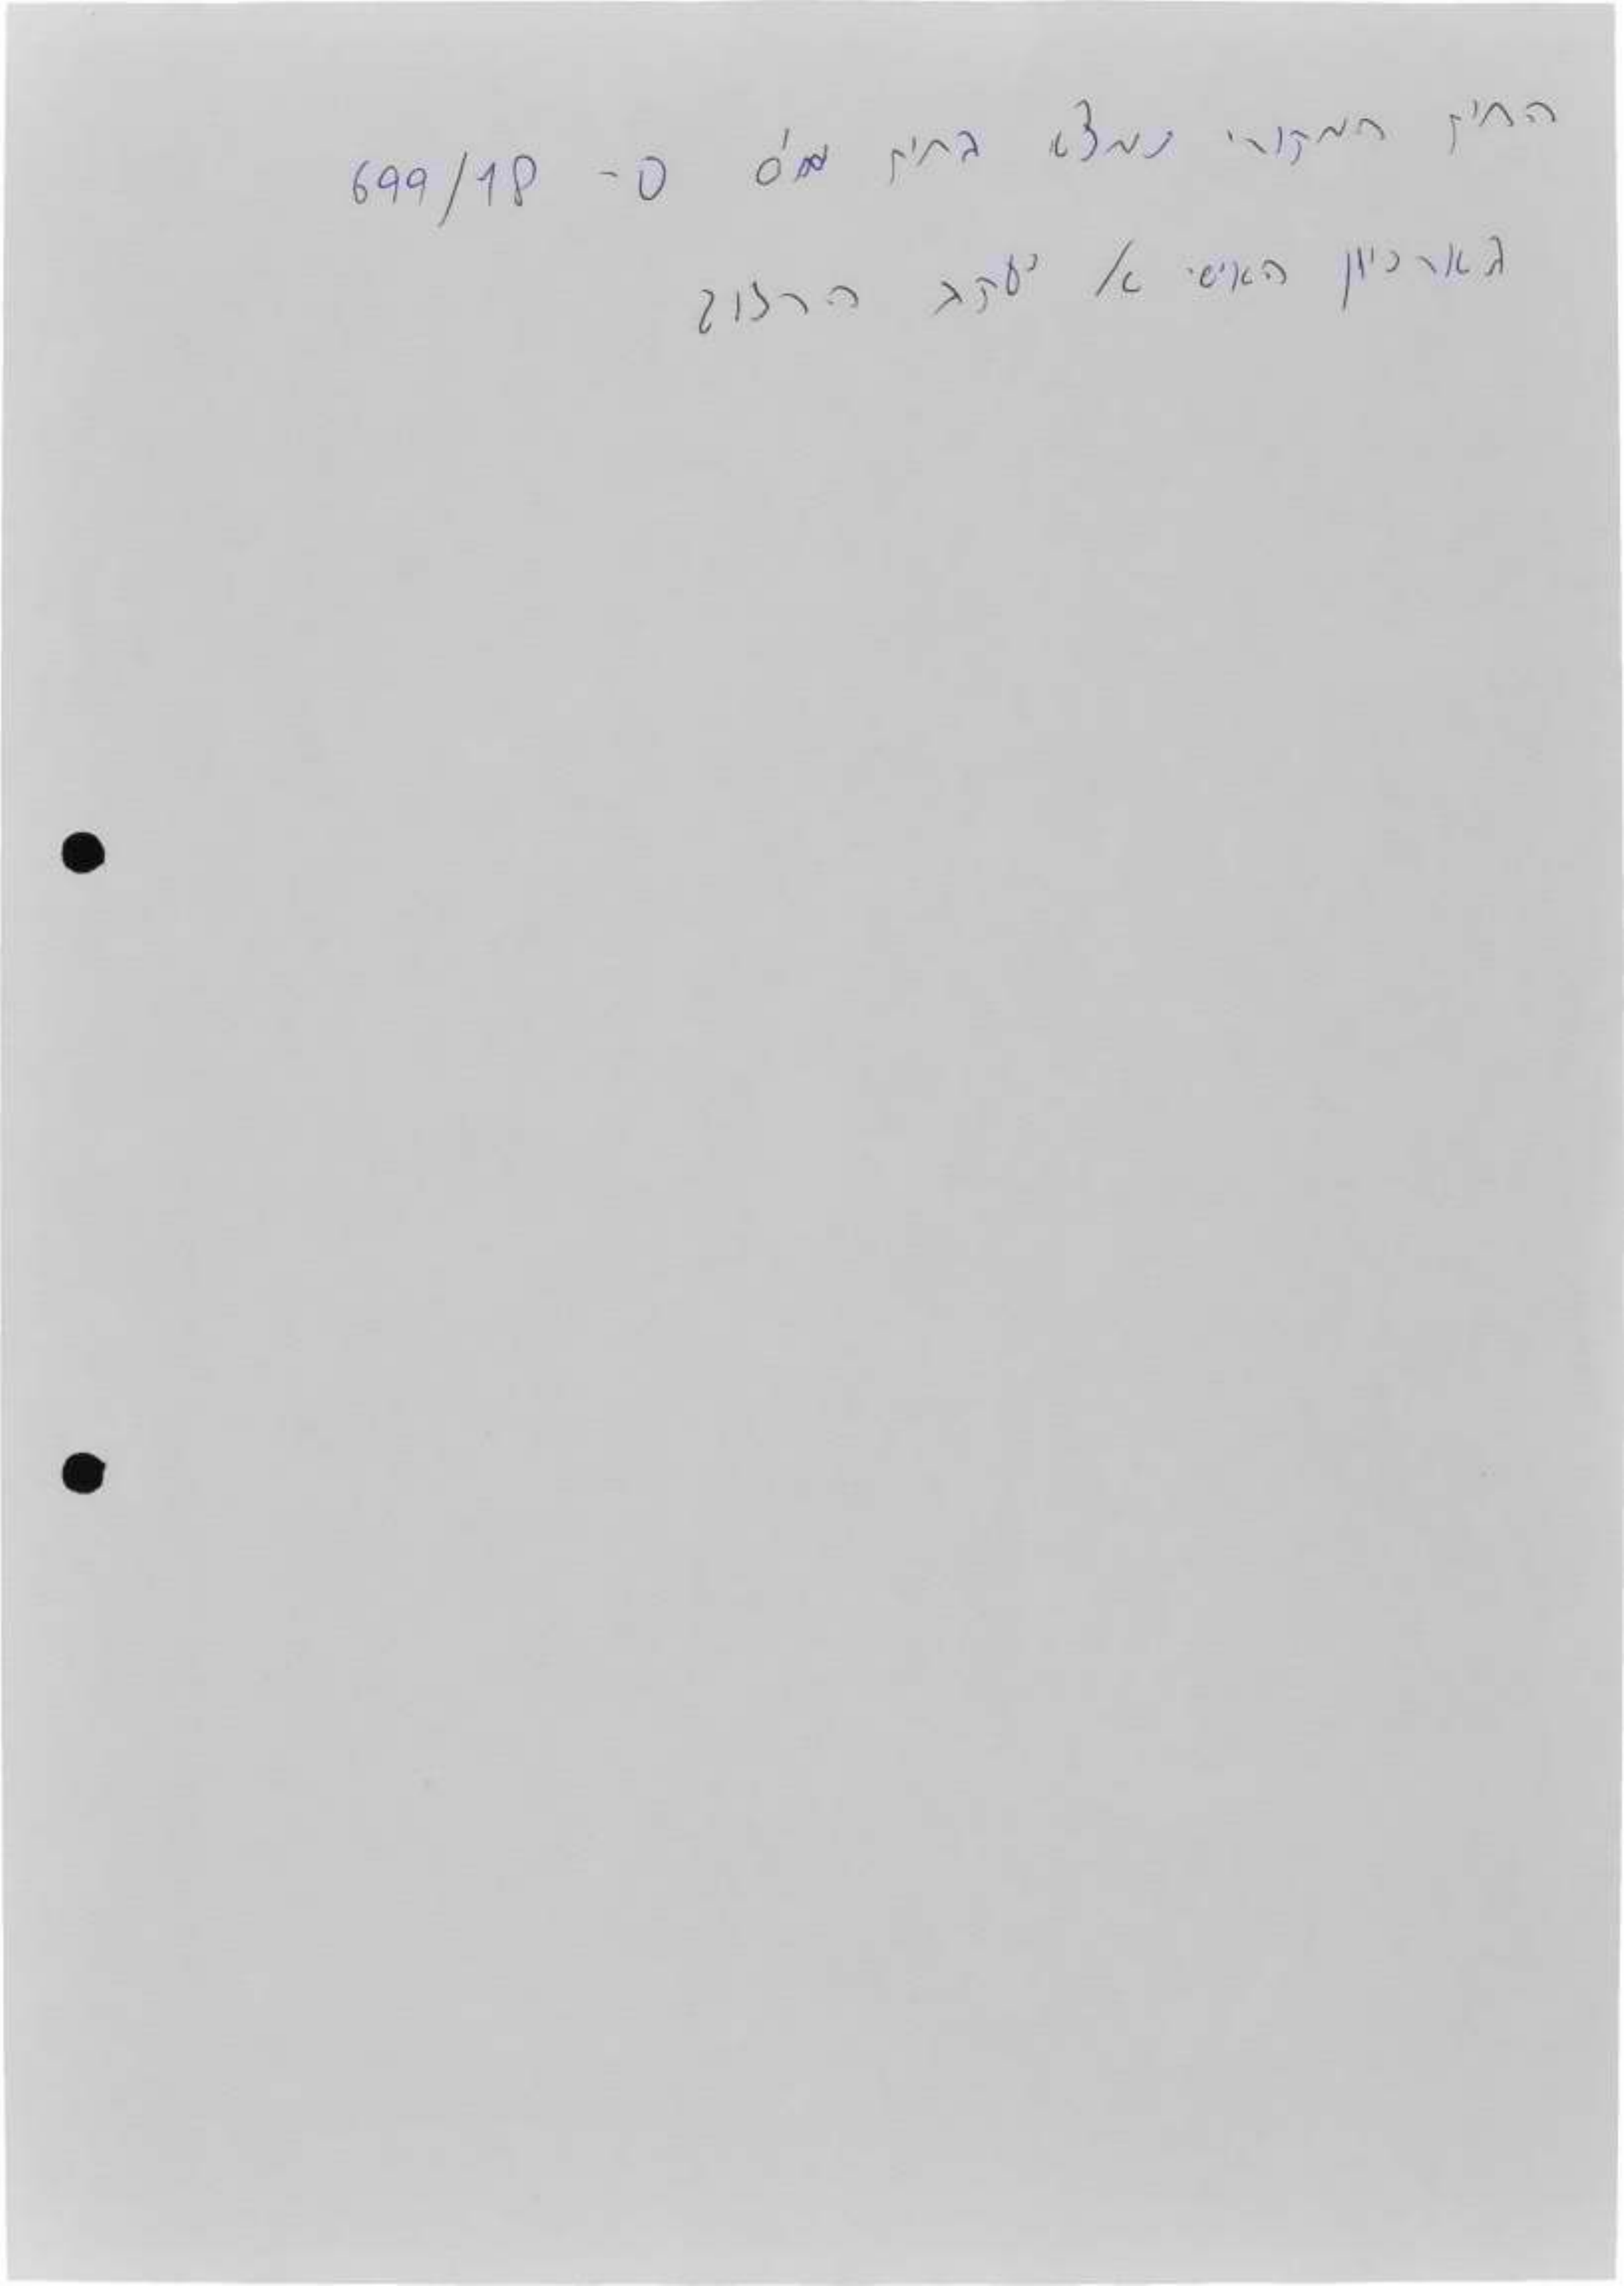 התיק המקורי נמצא בתיק מס' פ- 699/18
בארכיון האישי של יעקב הרצוג